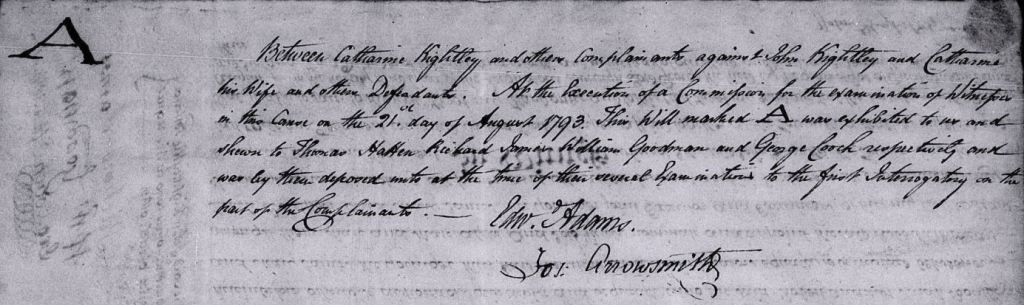 A
Between Catharine Kightley and others Complainants, against John Kightley and Catharine
his Wife and others Defendants. At the Execution of a Commission for the examination of Witnesses
in this Cause on the 21st day of August 1793. This Will marked A was exhibited to us and
shewn to Thomas Hatten Richard James William Goodman and George Cooch respectively and
was by them deposed unto at the time of their several Examinations to the first Interrogatory on the
part of the Complainants. —
Edwd. Adams.
Jos: Arrowsmith